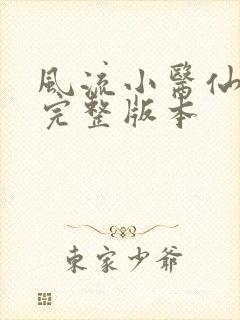 風流小醫仙
完整版本
東家少爺